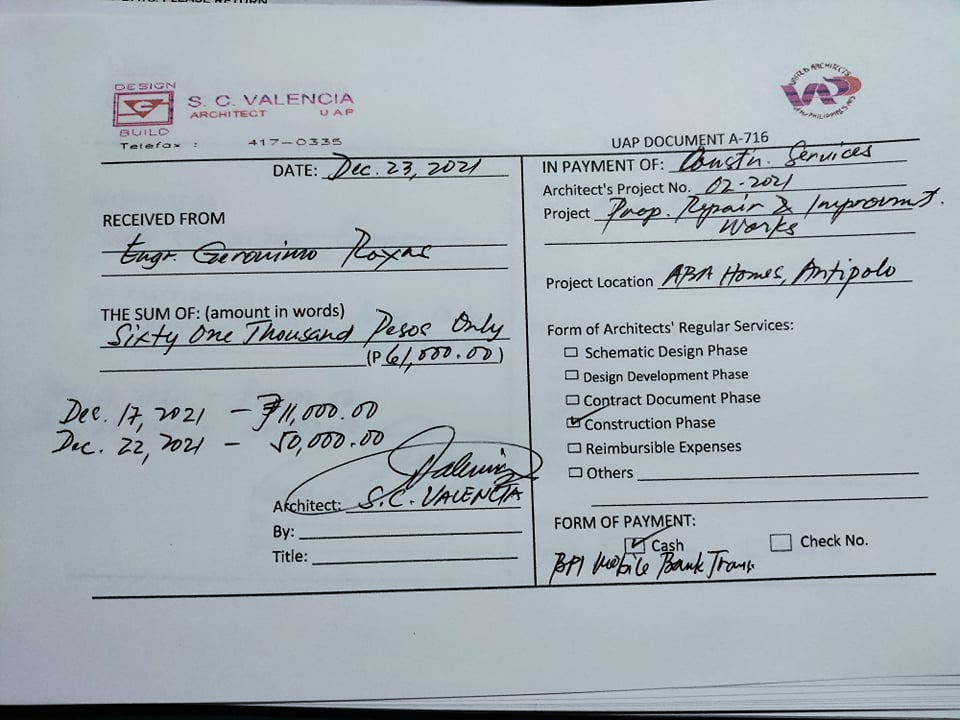 DESIGN
BUILD
S. C. VALENCIA
ARCHITECT UAP
Telefax : 417-0336
UNITED ARCHITECTS
UAP
of the PHILIPPINES
UAP DOCUMENT A-716
DATE: Dec. 23, 2021
RECEIVED FROM
Engr. Geronimo Roxas
THE SUM OF: (amount in words)
Sixty One Thousand Pesos Only
(P 61,000.00)
Dec. 17, 2021 – ₱11,000.00
Dec. 22, 2021 – 50,000.00
Architect: S.C. VALENCIA
By:
Title:
IN PAYMENT OF: Constn. Services
Architect's Project No. 02-2021
Project Prop. Repair & Improvmt.
Works
Project Location ABA Homes, Antipolo
Form of Architects' Regular Services:
Schematic Design Phase
Design Development Phase
Contract Document Phase
Construction Phase
Reimbursible Expenses
Others
FORM OF PAYMENT:
Cash Check No.
BPI Mobile Bank Trans